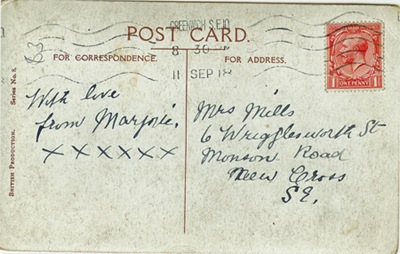 GREENWICH S.E.10
POST CARD.
8 30
FOR CORRESPONDENCE.
FOR ADDRESS.
11 SEP 18
83
ONE PENNY
1 1
Series No. 8.
BRITISH PRODUCTION.
With love
from Marjorie.
X X X X X X
Mrs Mills
6 Wrigglesworth St
Monson Road
New Cross
S.E.